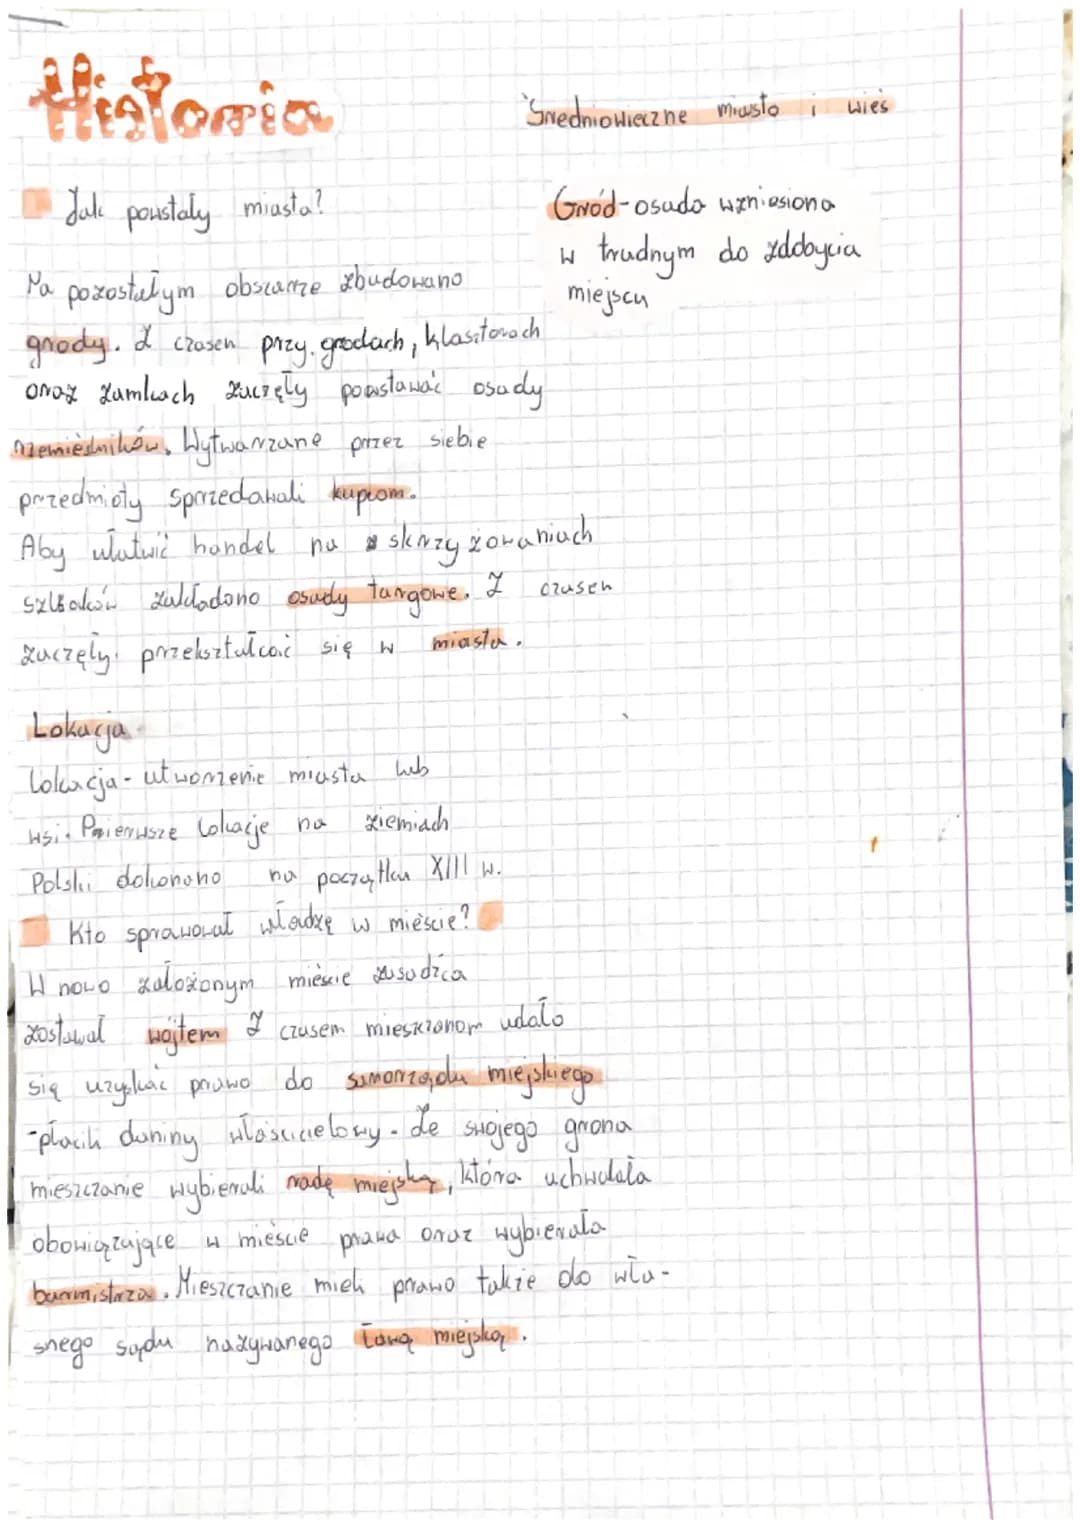 Historia
Średniowieczne miasto i wieś
Jak powstały miasta?
Gród-osada wzniesiona
w trudnym do zdobycia
miejscu
Na pozostałym obszarze zbudowano
grody. Z czasem przy grodach, klasztorach
oraz zamkach zaczęły powstawać osady
rzemieślników. Wytwarzane przez siebie
przedmioty sprzedawali kupcom.
Aby ułatwić handel na skrzyżowaniach
szlaków zakładano osady targowe. Z czasem
zaczęły przekształcać się w miasta.
Lokacja
Lokacja - utworzenie miasta lub
wsi. Pierwsze lokacje na ziemiach
Polski dokonano na początku XIII w.
Kto sprawował władzę w mieście?
W nowo założonym mieście zasadźca
zostawał wójtem Z czasem mieszczanom udało
się uzyskać prawo do samorządu miejskiego
-płacili daniny właścicielowy. Ze swojego grona
mieszczanie wybierali radę miejską, która uchwalała
obowiązujące w mieście prawa oraz wybierała
burmistrza. Mieszczanie mieli prawo także do wła-
snego sądu nazywanego ławą miejską.